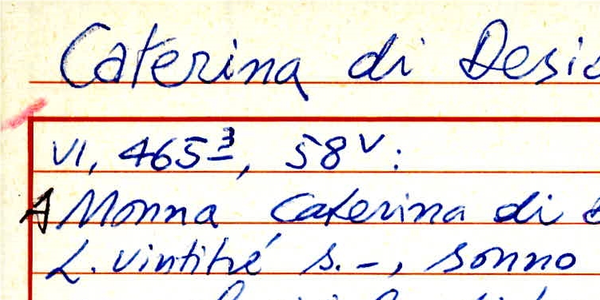 Caterina di Desi
VI, 465³, 58v:
A Monna Caterina di
L. vintitré s. -, sonno